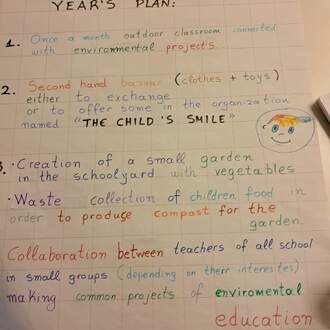 YEAR'S PLAN:
1. Once a month outdoor classroom connected
with environmental projects
2. Second hand bazaar (clothes + toys)
either to exchange
or to offer some in the organization
named "THE CHILD'S SMILE"
3. • Creation of a small garden
in the schoolyard with vegetables
• Waste collection of children food in
order to produce compost for the
garden.
Collaboration between teachers of all school
in small groups (depending on their interestes)
making common projects of enviromental
education